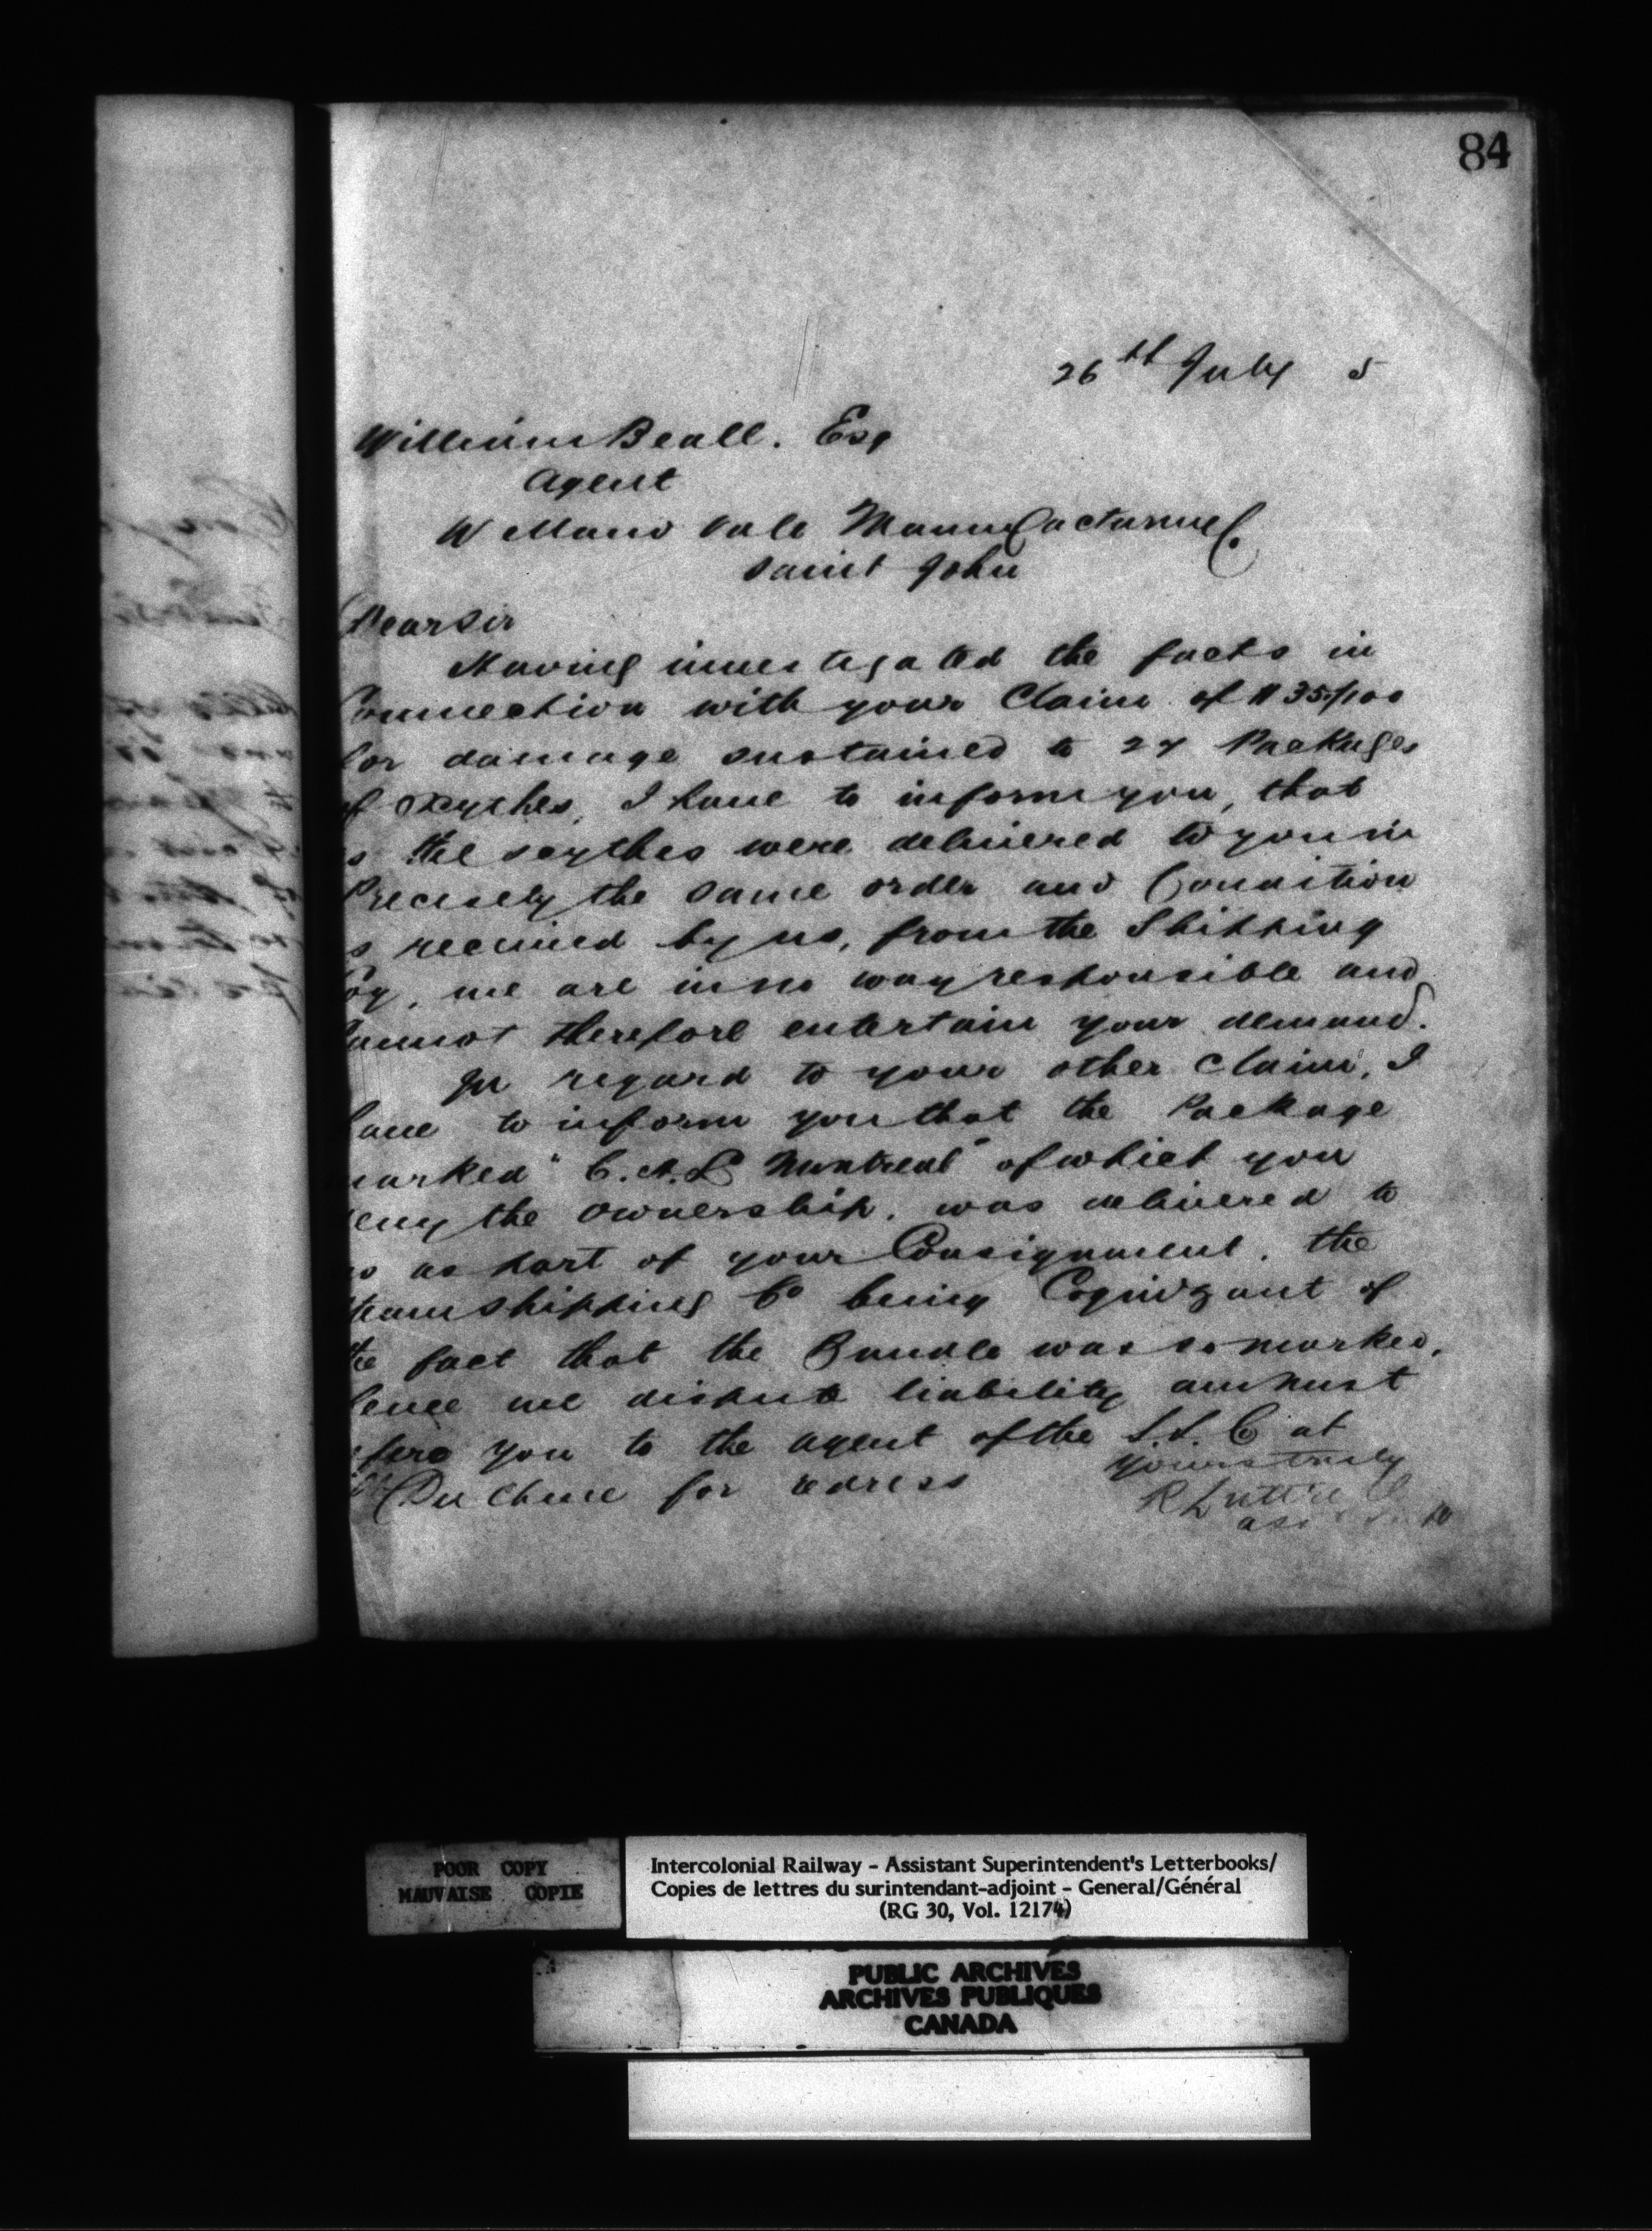 84
26th July 5
William Beall. Esq
Agent
Welland Vale Manufacturing C.
Saint John
Dear Sir
Having investigated the facts in
Connection with your Claim of
for damage sustained to 24 Packages
of Scythes, I have to inform you, that
as the scythes were delivered to you in
Precisely the same order and Condition
as received by us, from the Shipping
Coy, we are in no way responsible and
Cannot therefore entertain your demand.
In regard to your other Claim, I
have to inform you that the Package
marked "C.A.L Montreal" of which you
deny the ownership, was delivered to
us as part of your Consignment, the
Steamshipping Co being Cognizant of
the fact that the Bundle was so marked,
hence we dispute liability and must
refere you to the agent of the S.S. Co at
Pt Du Chene for redress
Yours truly
R Luttrell
POOR COPY
MAUVAISE COPIE
Intercolonial Railway - Assistant Superintendent's Letterbooks/
Copies de lettres du surintendant-adjoint - General/Général
(RG 30, Vol. 12174)
PUBLIC ARCHIVES
ARCHIVES PUBLIQUES
CANADA